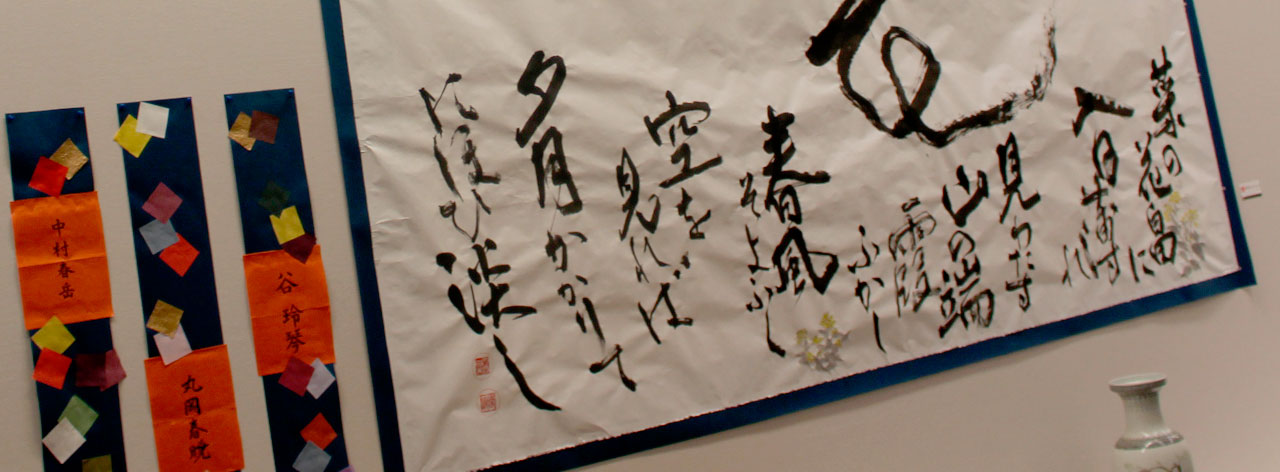 菜の花畠に
入日薄れ
見わたす
山の端
霞
ふかし
春風
そよふく
空を
見れば
夕月かかりて
にほひ淡し
中村春岳
丸岡春暁
谷玲琴